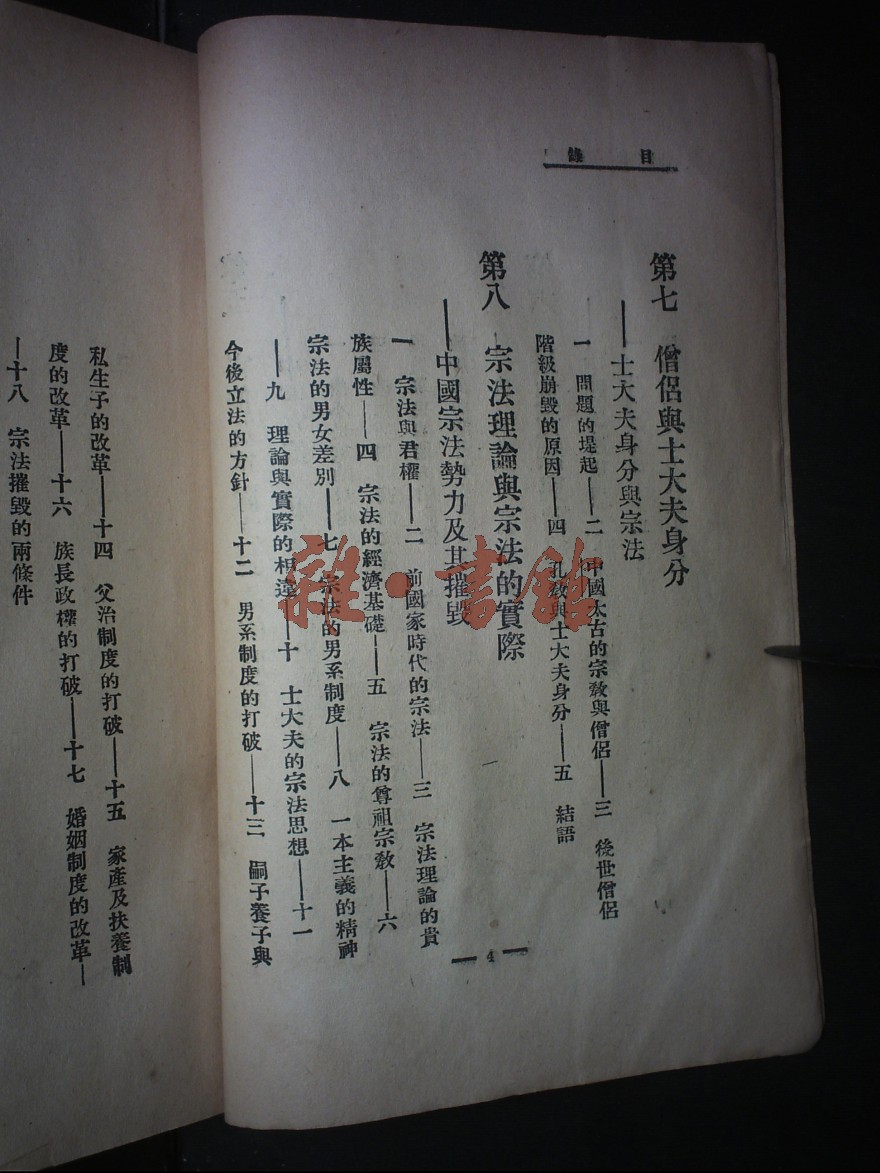 目錄
第七　僧侶與士大夫身分
——士大夫身分與宗法
一　問題的堤起——二　中國太古的宗教與僧侶——三　後世僧侶
階級崩毀的原因——四　孔教與士大夫身分——五　結語
第八　宗法理論與宗法的實際
——中國宗法勢力及其摧毀
一　宗法與君權——二　前國家時代的宗法——三　宗法理論的貴
族屬性——四　宗法的經濟基礎——五　宗法的尊祖宗教——六
宗法的男女差別——七　宗法的男系制度——八　一本主義的精神
——九　理論與實際的相違——十　士大夫的宗法思想——十一
今後立法的方針——十二　男系制度的打破——十三　嗣子養子與
—4—
私生子的改革——十四　父治制度的打破——十五　家產及扶養制
度的改革——十六　族長政權的打破——十七　婚姻制度的改革—
—十八　宗法摧毀的兩條件
雜·書館